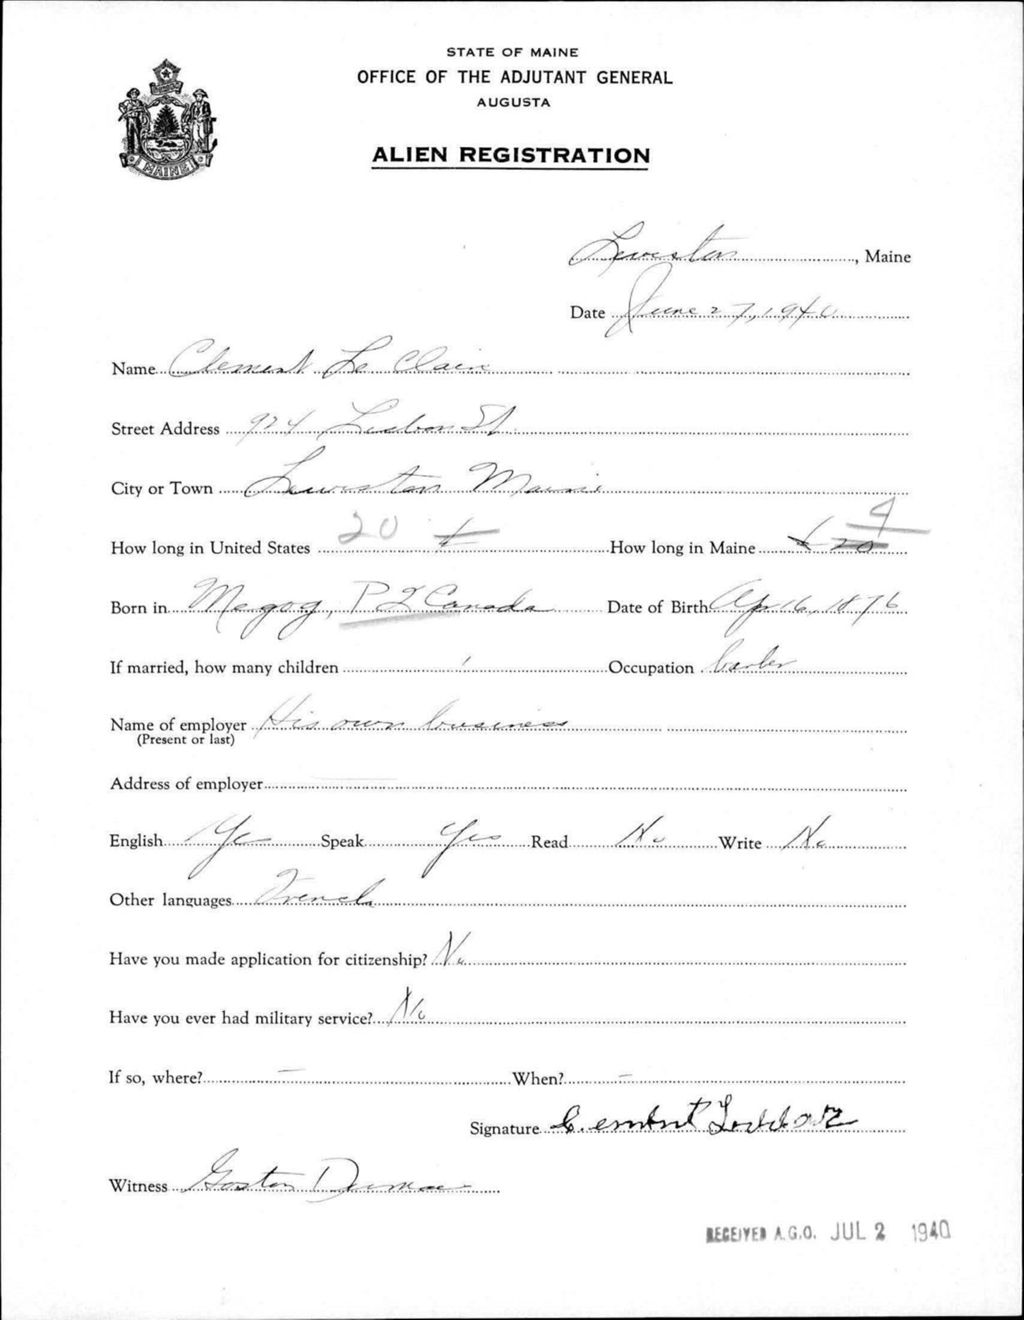 STATE OF MAINE
OFFICE OF THE ADJUTANT GENERAL
AUGUSTA
ALIEN REGISTRATION
MAINE
Lewiston, Maine
Date June 27, 1940
Name Clement Le Clair
Street Address 974 Lisbon St
City or Town Lewiston Maine
How long in United States 20 How long in Maine 20 4
Born in Magog, P Q Canada Date of Birth Ap 16, 1876
If married, how many children 1 Occupation barber
Name of employer His own business
(Present or last)
Address of employer —
English Yes Speak Yes Read No Write No
Other languages French
Have you made application for citizenship? No
Have you ever had military service? No
If so, where? — When? —
Signature
Witness Gaston Dumas
RECEIVED A.G.O. JUL 2 1940